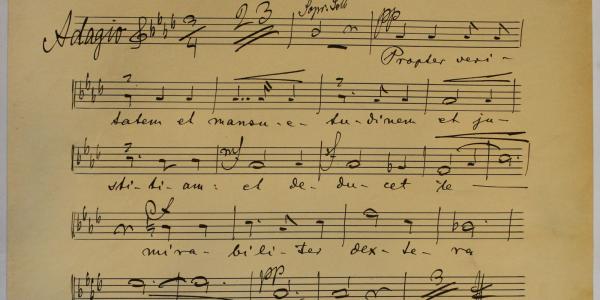 Adagio 3/4 23 Sopr. Solo pp
Propter veri-
tatem et mansu-e-tu-dinem et ju-
mf f
sti-ti-am: et de-du-cet te
f
mira-bi-li-ter dex-te-ra
pp 3